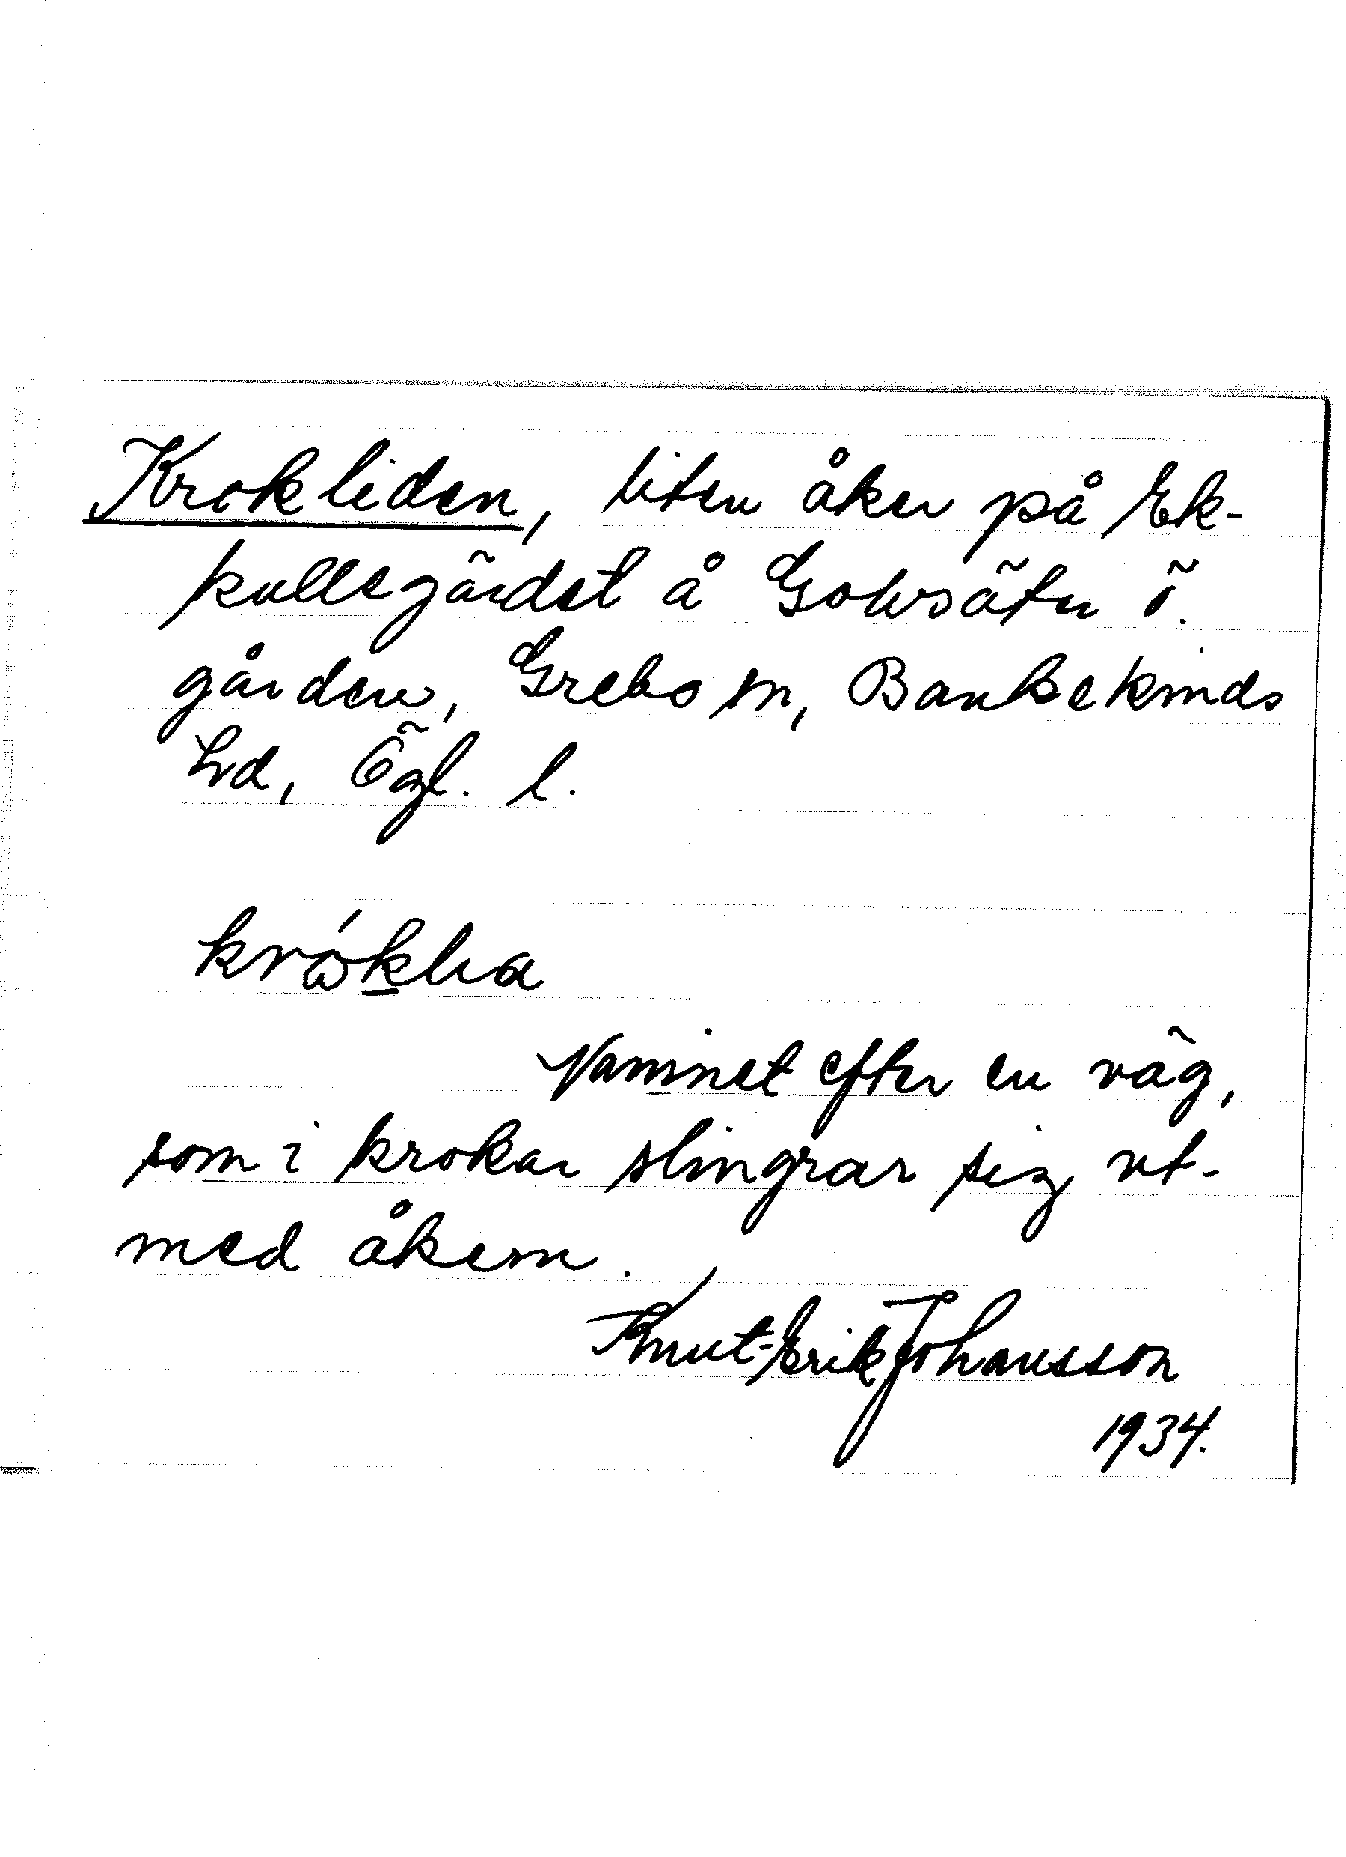 Krokliden, liten åker på Ek-
kullegärdet å Gohrsäter ö.
gården, Grebo sn, Bankekinds
hd, Ögl. l.
króklia
Namnet efter en väg,
som i krokar slingrar sig ut-
med åkern.
Knut-Erik Johansson
1934.